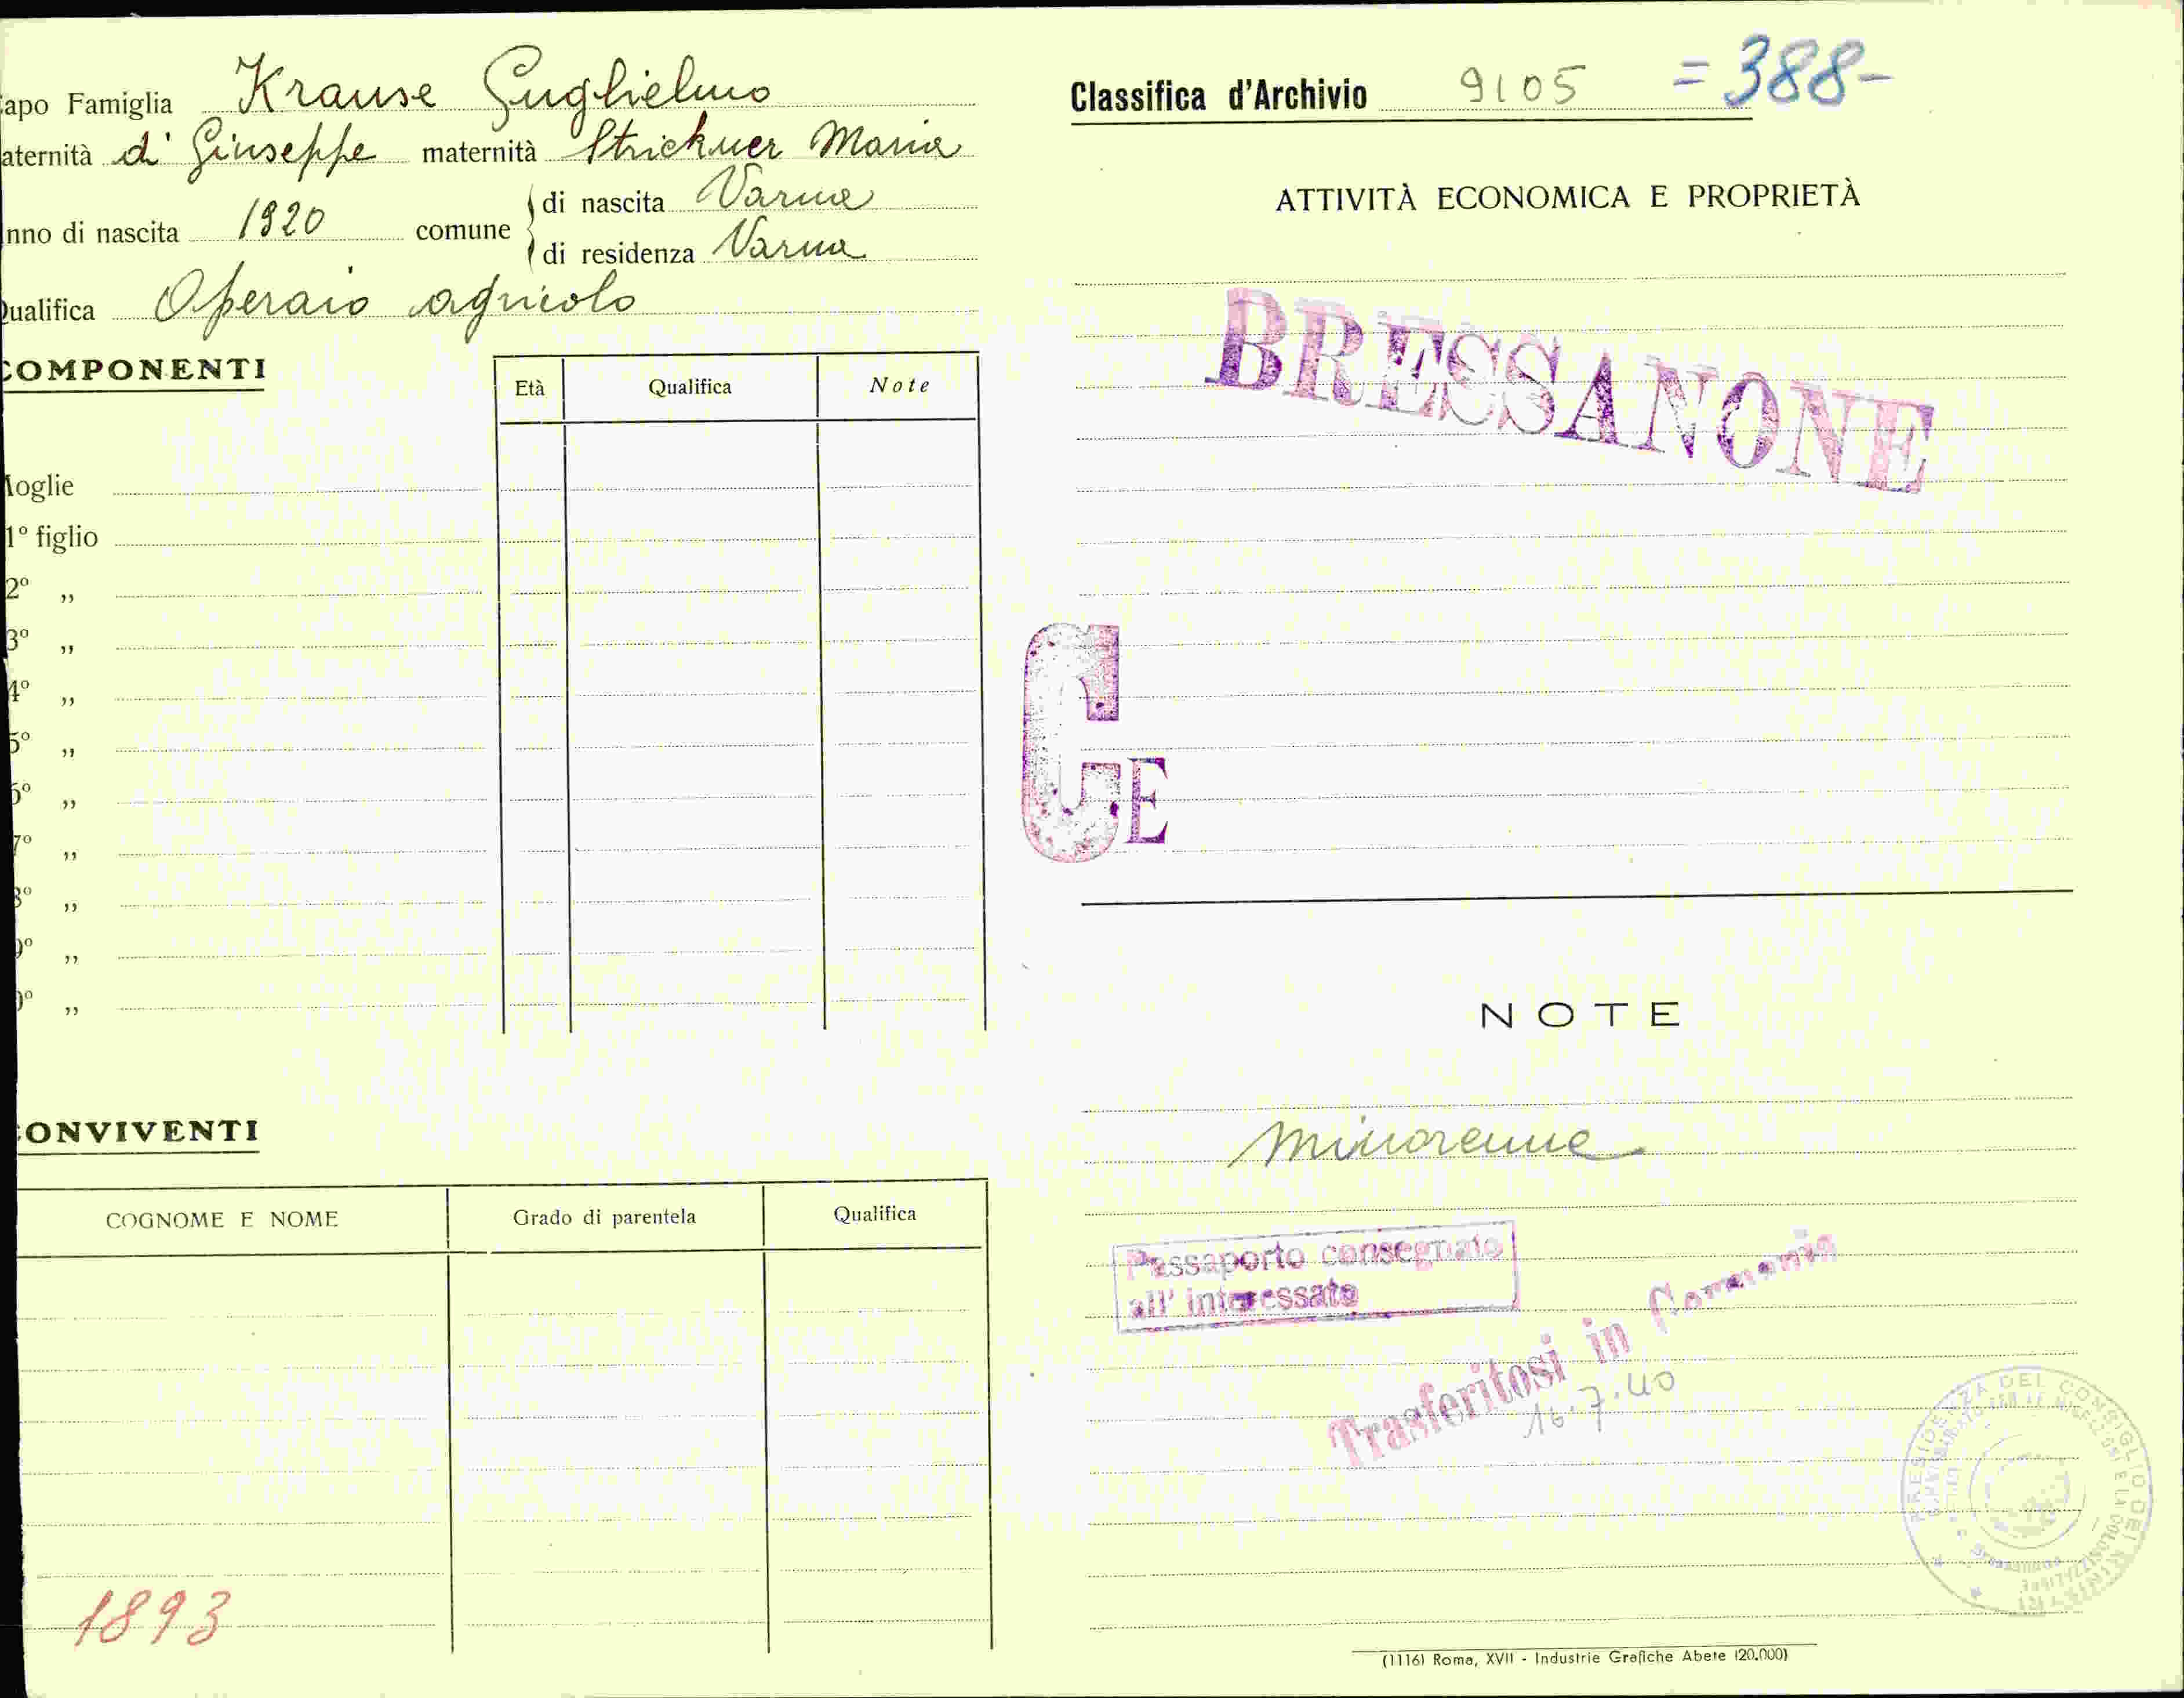 apo Famiglia Krause Guglielmo
aternità di Giuseppe maternità Strickner Maria
nno di nascita 1920 comune di nascita Varna
di residenza Varna
ualifica Operaio agricolo
COMPONENTI
Età Qualifica Note
oglie
1º figlio
2º „
3º „
4º „
5º „
6º „
7º „
8º „
9º „
0º „
CONVIVENTI
COGNOME E NOME Grado di parentela Qualifica
1893
Classifica d'Archivio 9105 = 388-
ATTIVITÀ ECONOMICA E PROPRIETÀ
BRESSANONE
C
E
NOTE
minorenne
Passaporto consegnato
all' interessato
Trasferitosi in Germania
16.7.40
PRESIDENZA DEL CONSIGLIO DEI
Bressanone
(1116) Roma, XVII - Industrie Grafiche Abete (20.000)